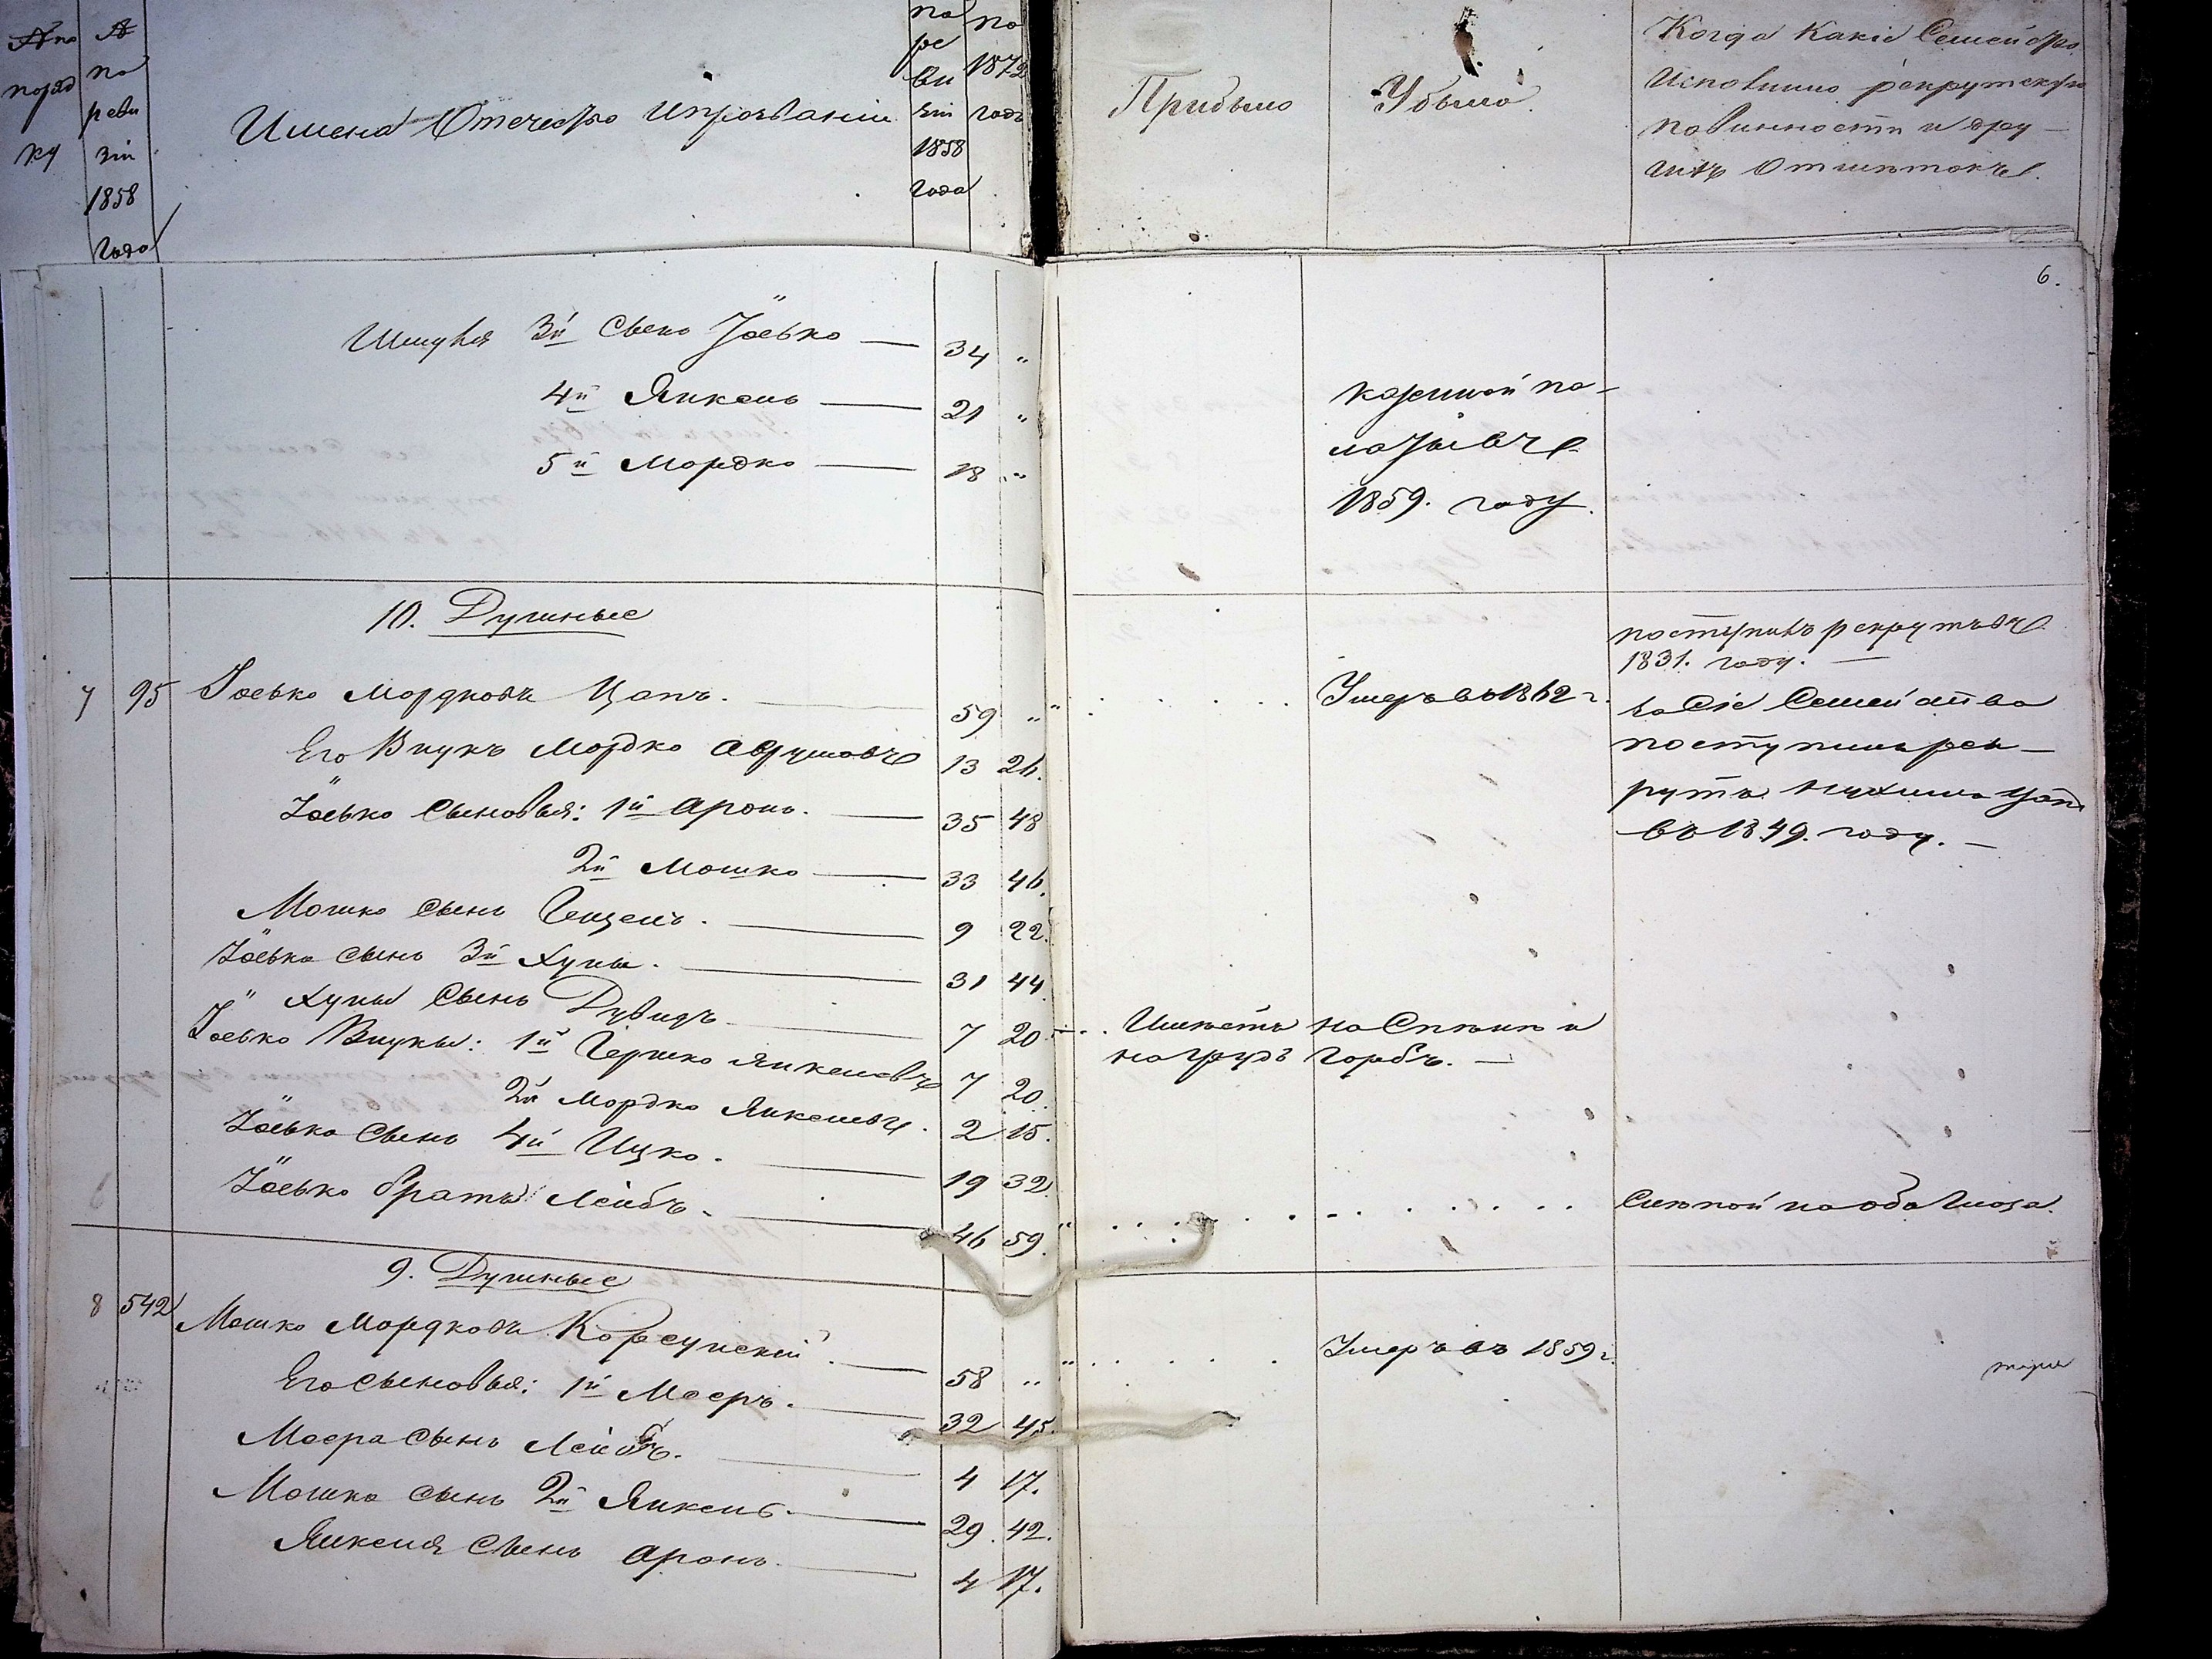 № по
поряд
ку
№
по
реви
зіи
1858
года
Имена Отчество и прозваніи
по
ре
ви
зіи
1858
года
по
1872
годъ
Прибыло
Убыло.
Когда Какіе Семейство
Исполнило рекрутскую
повинности и дру-
гихъ Отметокъ.
6.
Шмуля 3й Сынъ Іосько — 34 "
4й Янкель — 21 "
5й Мордко — 18 "
казенной па-
латы въ
1859. году.
10. Душные
поступилъ рекрутъ въ
1831. году. —
7 95 Іосько Мордковъ Цапъ. 59 " Умеръ въ 1862 г.
за Сіе Семейство
поступилъ рек-
рутъ Нухимъ Цапъ
въ 1849. году. —
Его Внукъ Мордко Аврумовъ 13 26.
Іосько Сыновья: 1й Аронъ. — 35 48
2й Мошко — 33 46.
Мошко Сынъ Герцель. — 9 22.
Іосько Сынъ 3й Хуна. — 31 44.
Хуны Сынъ Дувидъ. — 7 20. Имеетъ на Спине и
на грудь Горбъ. —
Іосько Внуки: 1й Гершко Янкелевъ 7 20.
2й Мордко Янкелевъ. 2 15.
Іосько Сынъ 4й Ицко. — 19 32.
Іосько братъ Лейбъ. — 46 59. " Слепой на оба Глаза.
9. Душные
8 542 Мошко Мордковъ Корсунскій. — 58 " Умеръ въ 1859 г.
Его Сыновья: 1й Мееръ. — 32 45.
Меера Сынъ Лейбъ. — 4 17.
Мошко Сынъ 2й Янкель — 29. 42.
Янкеля Сынъ Аронъ. — 4 17.